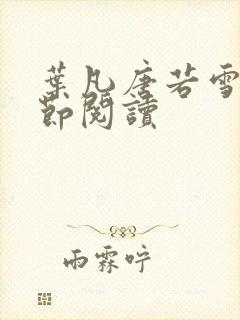 葉凡唐若雪
節閱讀
雨霖咛